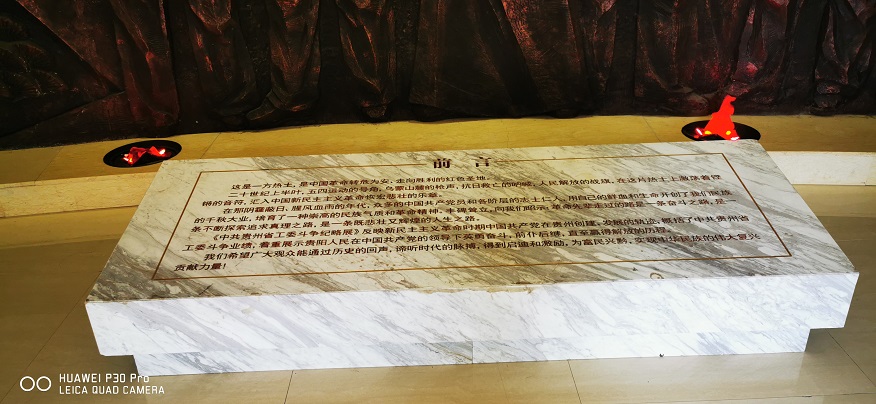 前 言
这是一方热土,是中国革命转危为安、走向胜利的红色圣地。
二十世纪上半叶,五四运动的号角,乌蒙山麓的枪声,抗日救亡的呐喊,人民解放的战旗,在这片热土上激荡着铿
锵的音符,汇入中国新民主主义革命恢宏悲壮的乐章。
在那阴霾蔽日、腥风血雨的年代,众多的中国共产党员和各阶层的志士仁人,用自己的鲜血和生命开创了我们民族
的千秋大业,培育了一种崇高的民族气质和革命精神。丰碑耸立,向我们昭示,革命先辈走过的路是一条奋斗之路,是一
条不断探索追求真理之路,是一条既悲壮又辉煌的人生之路。
《中共贵州省工委斗争纪略展》反映新民主主义革命时期中国共产党在贵州创建、发展的轨迹,概括了中共贵州省
工委斗争业绩,着重展示贵阳人民在中国共产党的领导下英勇奋斗,前仆后继,直至赢得解放的历程。
我们希望广大观众能通过历史的回声,谛听时代的脉搏,得到启迪和激励,为富民兴黔,实现中华民族的伟大复兴
贡献力量!
HUAWEI P30 Pro
LEICA QUAD CAMERA